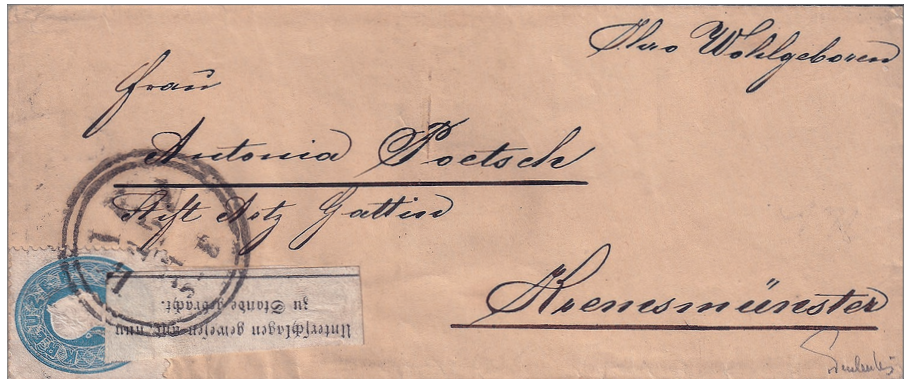 Ihro Wohlgeboren
Frau
Antonia Poetsch
Stift Artz Gattin
Kremsmünster
LINZ
Unterschlagen gewesen und nun
zu Stande gebracht.
KREUZER